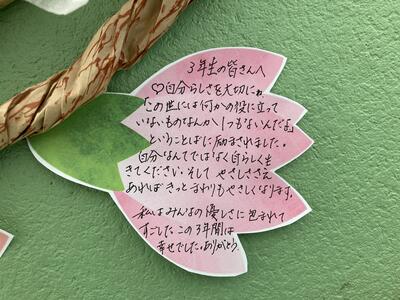 3年生の皆さんへ
♡自分らしさを大切にね
「この世には何かの役に立って
いないものなんか1つもないんだよ」
ということばに励まされました。
自分なんてではなく自らしく生
きてください。そして やさしささえ
あれば きっと まわりもやさしくなります。
私はみんなの優しさに包まれて
すごしたこの3年間は
幸せでした。ありがとう